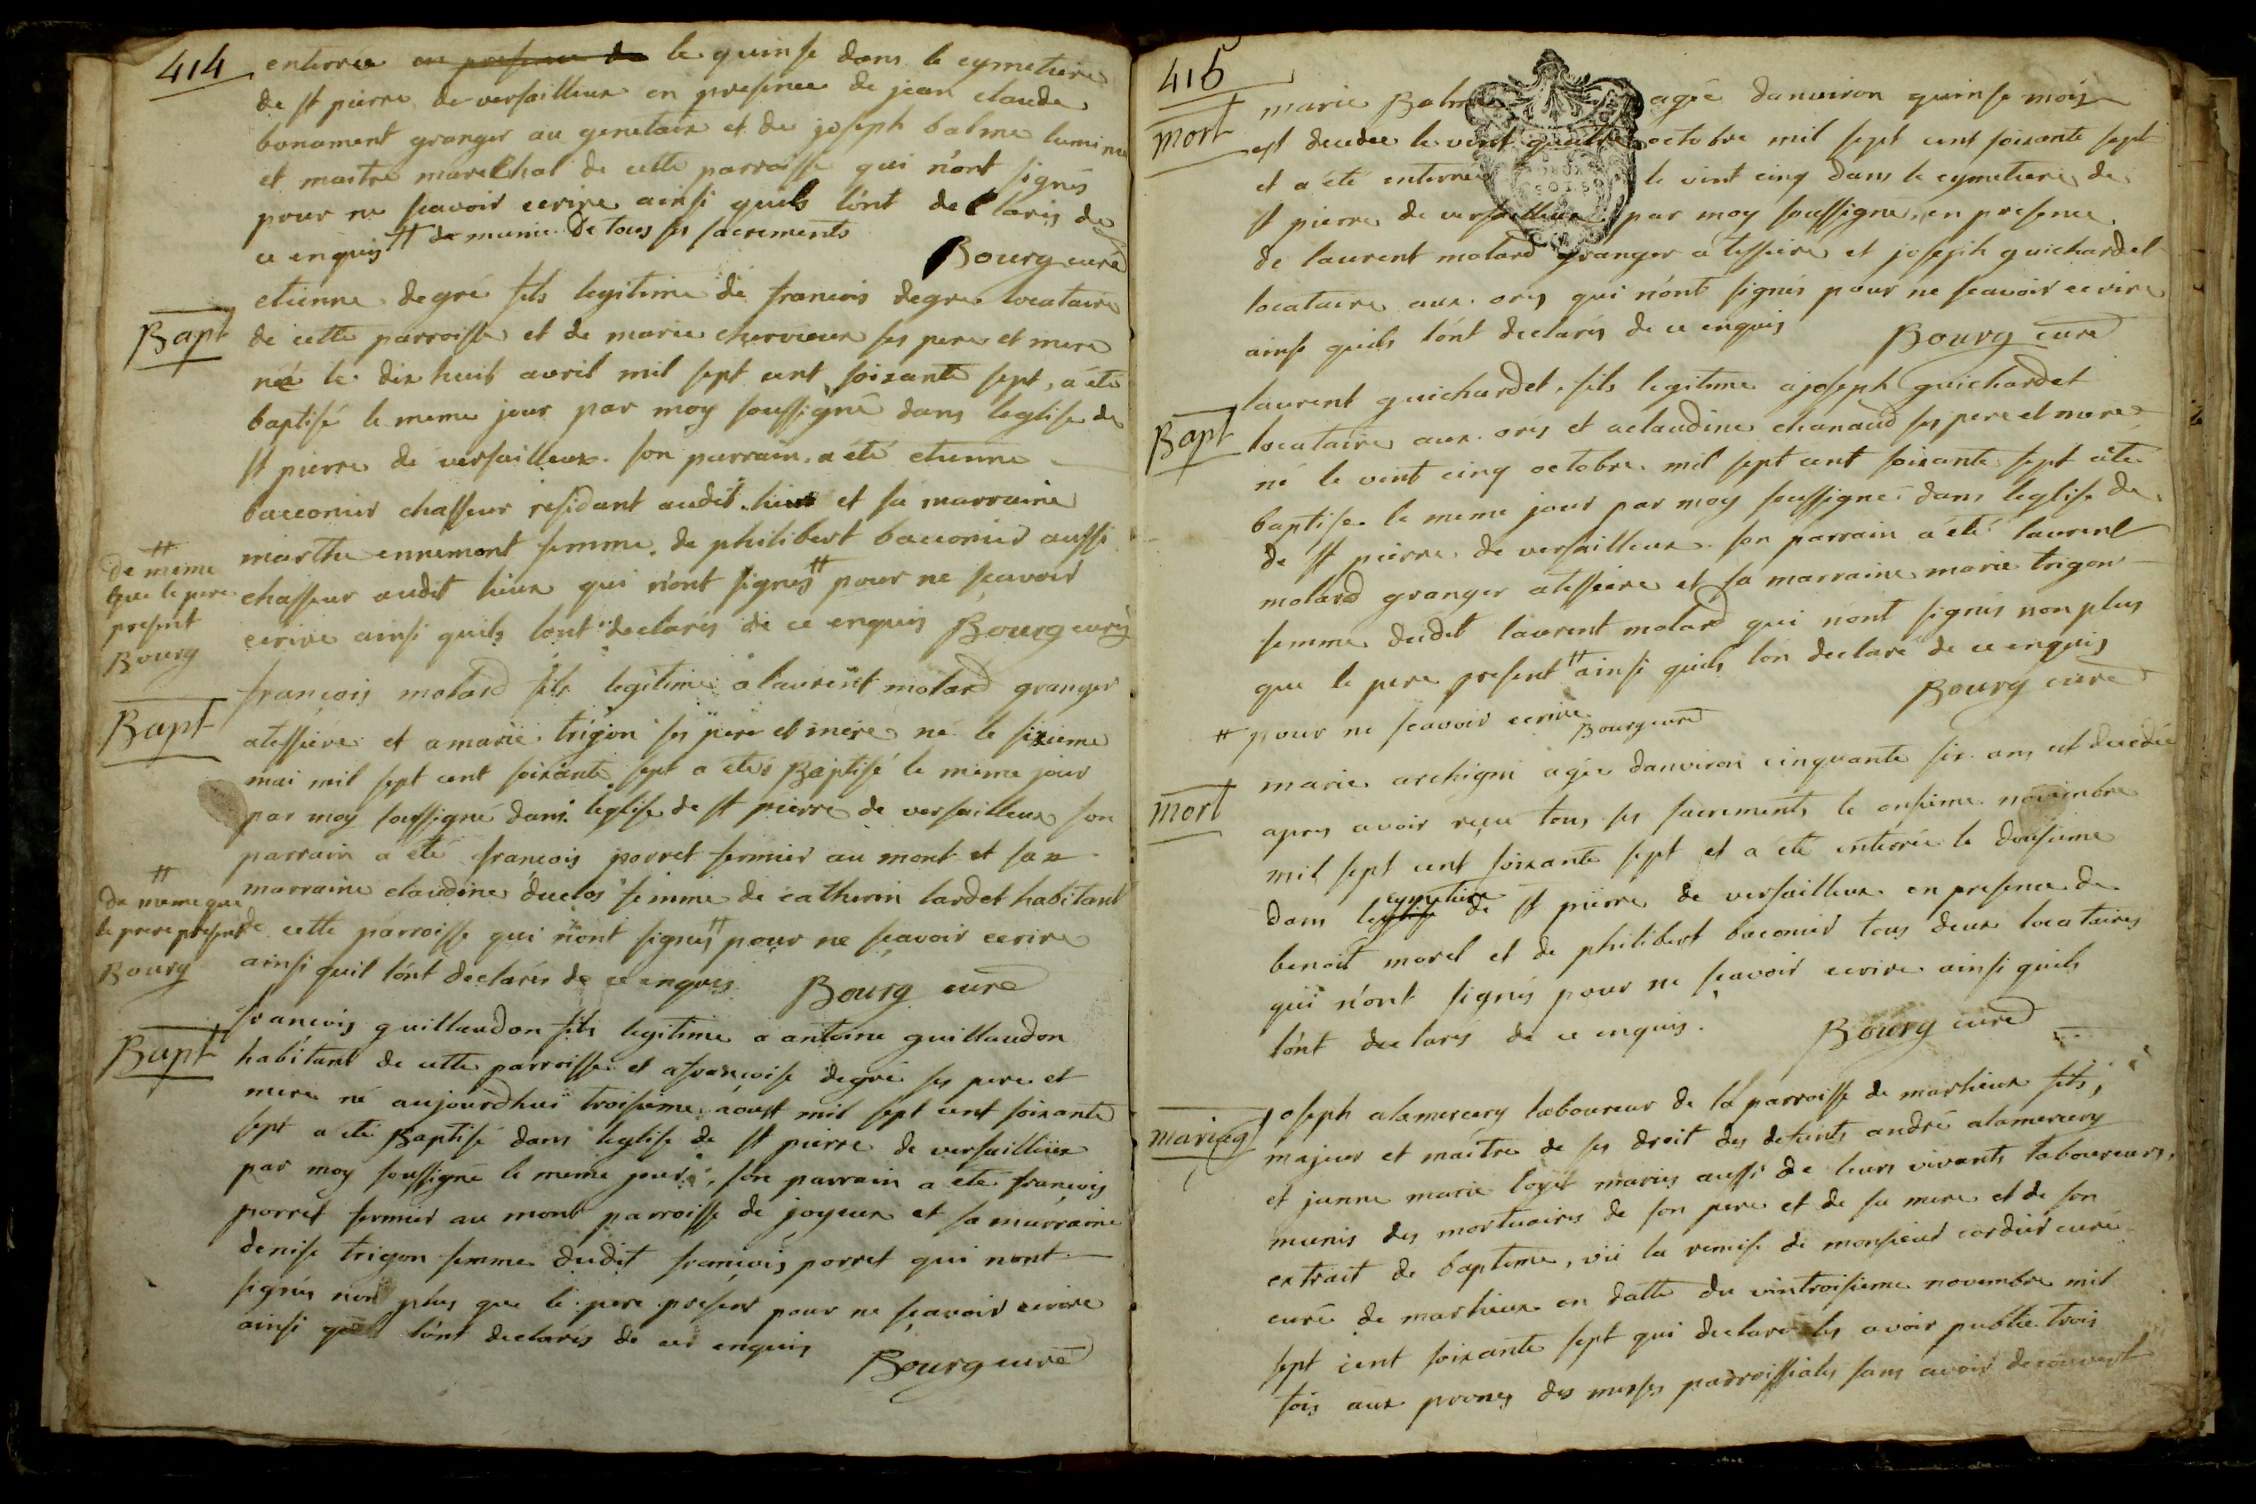 414
enterrée en presence de le quinse dans le cymetiere
de st pierre de versailleux en presence de jean claude
bonament granger au genetaix et de joseph balme
et maitre marechal de cette parroisse qui n'ont signés
pour ne scavoir ecrire ainsi quils l'ont declarés de
ce enquis # munie de tous ses sacrements
Bourg curé
Bapt
etienne degré fils legitime de francois degré locataire
de cette parroisse et de marie chervieux ses pere et mere
né le dix huit avril mil sept cent soixante sept, a été
baptisé le meme jour par moy soussigné dans leglise de
st pierre de versailleux. son parrain a été etienne
bacconier chasseur residant audit lieu et sa marraine
marthe ennemont femme de philibert bacconier aussi
chasseur audit lieux qui n'ont signés # pour ne scavoir
ecrire ainsi quils lont declarés de ce enquis Bourg curé
#
de meme
que le pere
present
Bourg
Bapt
françois molard fils legitime a laurent molard granger
atessiere et a marie trigon ses pere et mere né le sixieme
mai mil sept cent soixante sept a été Baptisé le meme jour
par moy soussigné dans leglise de st pierre de versailleux son
parrain a été francois porret fermier au mont et sa
marraine claudine duclos femme de catherin lardet habitant
de cette parroisse qui n'ont signés # pour ne sçavoir ecrire
ainsi quil l'ont declarés de ce enquis. Bourg curé
#
de meme que
le pere present
Bourg
Bapt
françois guillaudon fils legitime a antoine guillaudon
habitant de cette parroisse et a françoise degré ses pere et
mere né aujourdhui troisieme aoust mil sept cent soixante
sept a été Baptisé dans leglise de st pierre de versailleux
par moy soussigné le meme jour, son parrain a été françois
porret fermier au mont parroisse de joyeux et sa marraine
denise trigon femme dudit françois porret qui nont
signés non plus que le pere present pour ne sçavoir ecrire
ainsi quil l'ont declarés de ce enquis
Bourg curé
415
mort
marie Balme agée danviron quinse mois
est decedée le vint quatre octobre mil sept cent soixante sept
et a été enterrée le vint cinq dans le cymetiere de
st pierre de versailleux par moy soussigné, en presence
de laurent molard granger a tessiere et joseph guichardet
locataire aux oris qui n'ont signés pour ne scavoir ecrire
ainsi quils l'ont declarés de ce enquis Bourg curé
Bapt
laurent guichardet, fils legitime a joseph guichardet
locataire aux oris et a claudine chanaud ses pere et mere
né le vint cinq octobre mil sept cent soixante sept a été
baptisé le meme jour par moy soussigné dans leglise de
de st pierre de versailleux. son parrain a été laurent
molard granger atessiere et sa marraine marie trigon
femme dudit laurent molard qui n'ont signés non plus
que le pere present # ainsi quils l'on declaré de ce enquis
Bourg curé
# pour ne scavoir ecrire Bourg curé
mort
marie archigni agée danviron cinquante six ans est decedée
apres avoir reçu tous ses sacrements le onsieme novembre
mil sept cent soixante sept et a été enterrée le dousieme
dans leglise cymetiere de st pierre de versailleux en presence de
benoit morel et de philibert baconier tous deux locataires
qui n'ont signés pour ne scavoir ecrire ainsi quils
l'ont declarés de ce enquis.
Bourg curé
mariag
joseph alamercery laboureur de la parroisse de marlieux fils,
majeur et maitre de ses droit des defunts andré alamercery
et janne marie loyet mariés aussi de leurs vivants laboureurs,
munis des mortuaires de son pere et de sa mere et de son
extrait de bapteme, vû la remise de monsieur cordier curé
curé de marlieux en datte du vintroisieme novembre mil
sept cent soixante sept qui declare les avoir publié trois
fois aux prones des messes parroissiales sans avoir decouvert